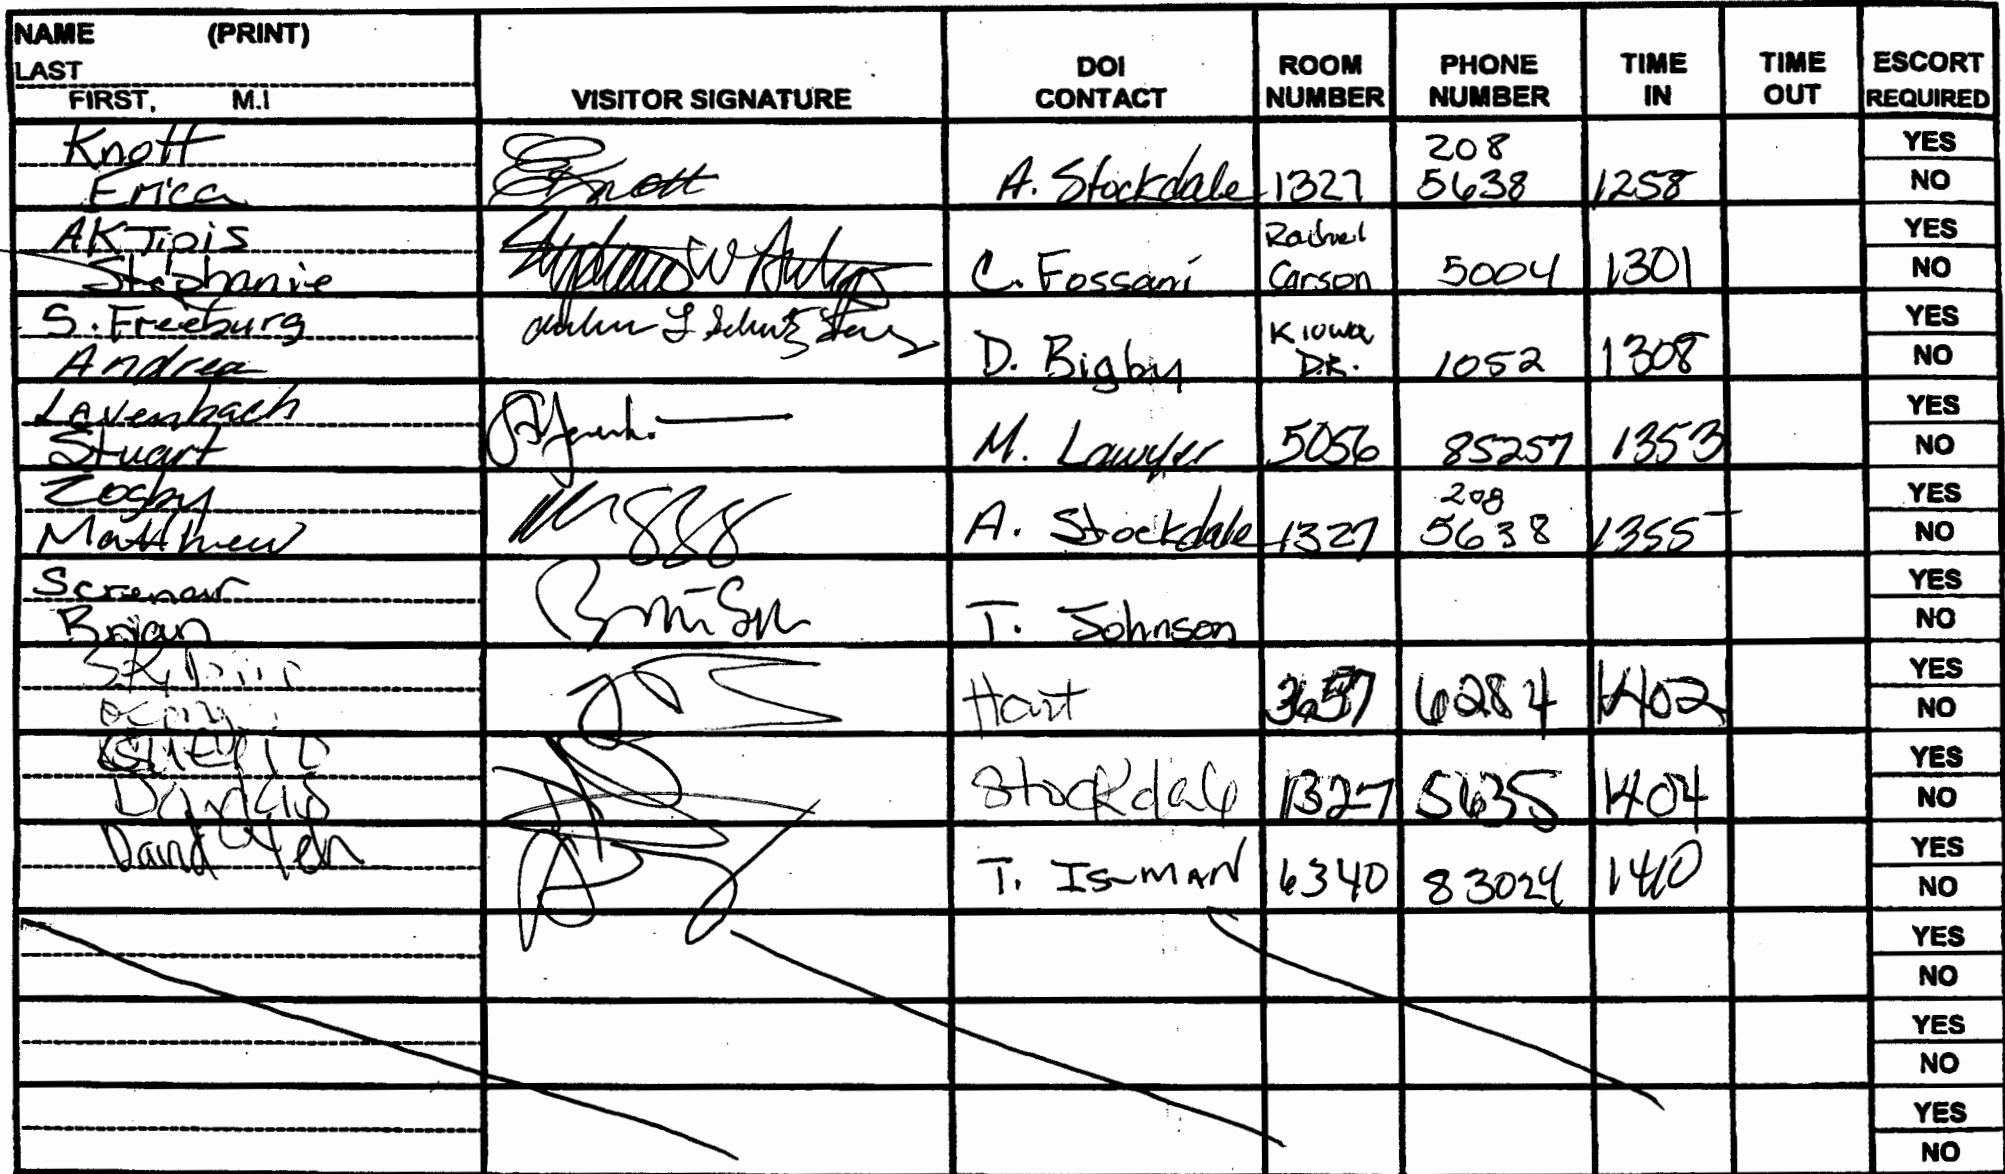 NAME (PRINT)
LAST
FIRST, M.I
VISITOR SIGNATURE
DOI CONTACT
ROOM NUMBER
PHONE NUMBER
TIME IN
TIME OUT
ESCORT REQUIRED
Knott
Erica
EKnott
A. Stockdale 1327 208 5638 1258 YES NO
AKTipis
Stephanie
C. Fossani Rachel Carson 5004 1301 YES NO
S. Freeburg
Andrea
D. Bigby Kiowa D.R. 1052 1308 YES NO
Lavenbach
Stuart
M. Lawyer 5056 85257 1353 YES NO
Zogby
Matthew
A. Stockdale 1327 208 5638 1355 YES NO
Brian
T. Johnson YES NO
Hart 3657 6284 1402 YES NO
Stockdale 1327 5635 1404 YES NO
David Yeh
T. 6340 83024 1410 YES NO
YES NO
YES NO
YES NO